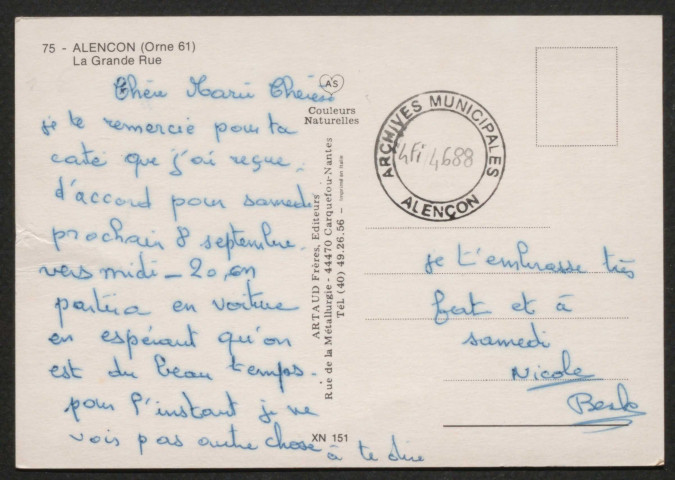 75 - ALENCON (Orne 61)
La Grande Rue
Chère Marie Thérèse
je te remercie pour ta
carte que j'ai reçue.
d'accord pour samedi
prochain 8 septembre
vers midi - 20, on
partira en voiture
en espérant qu'on
est du beau temps.
pour l'instant je ne
vois pas autre chose à te dire
AS
Couleurs
Naturelles
ARTAUD Frères, Editeurs
Rue de la Métallurgie - 44470 Carquefou-Nantes
Tél. (40) 49.26.56 - Imprimé en Italie
XN 151
ARCHIVES MUNICIPALES
4Fi 4688
ALENÇON
je t'embrasse très
fort et à
samedi
Nicole